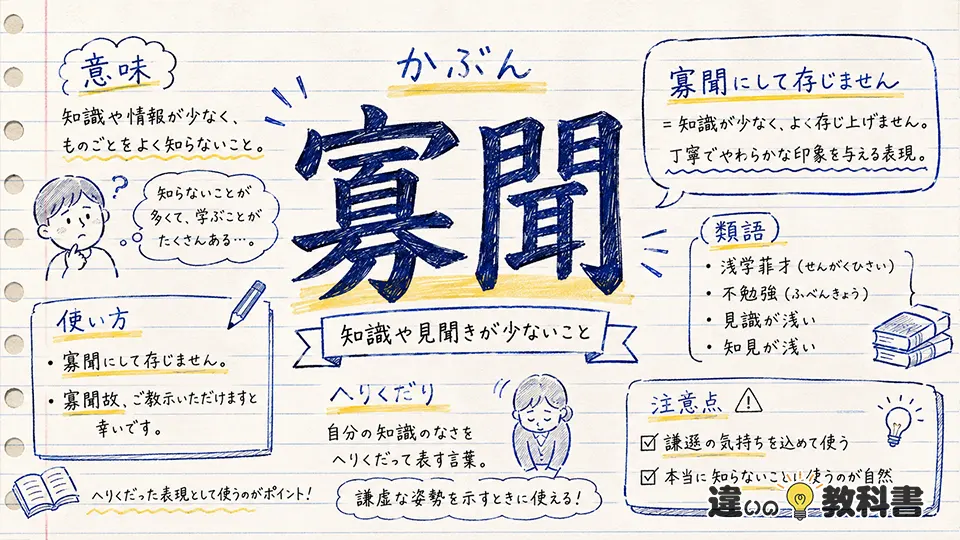 かぶん
寡聞
知識や見聞きが少ないこと
意味
知識や情報が少なく、
ものごとをよく知らないこと。
?
知らないことが
多くて、学ぶことが
たくさんある…。
使い方
・寡聞にして存じません。
・寡聞故、ご教示いただけますと
幸いです。
へりくだった表現として使うのがポイント!
へりくだり
自分の知識のなさを
へりくだって表す言葉。
謙虚な姿勢を示すときに使える!
寡聞にして存じません
=知識が少なく、よく存じ上げません。
丁寧でやわらかな印象を与える表現。
類語
・浅学菲才(せんがくひさい)
・不勉強(ふべんきょう)
・見識が浅い
・知見が浅い
注意点
謙遜の気持ちを込めて使う
本当に知らないことに使うのが自然
違いの教科書